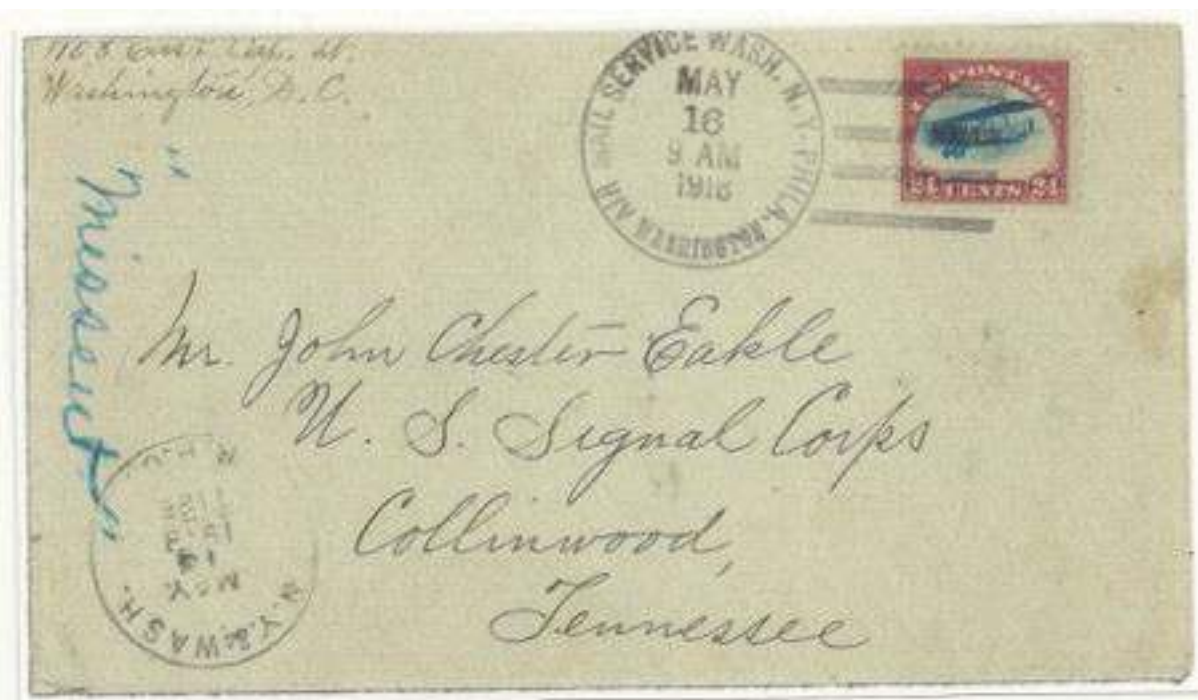 Washington, D.C.
AIR MAIL SERVICE WASH. N.Y. PHILA.
MAY
16
9 AM
1918
WASHINGTON
U.S. POSTAGE
24 CENTS 24
"Missent"
Mr. John Chester Eakle
U. S. Signal Corps
Collinwood,
Tennessee
N.Y. & WASH.
MAY
R.P.O.